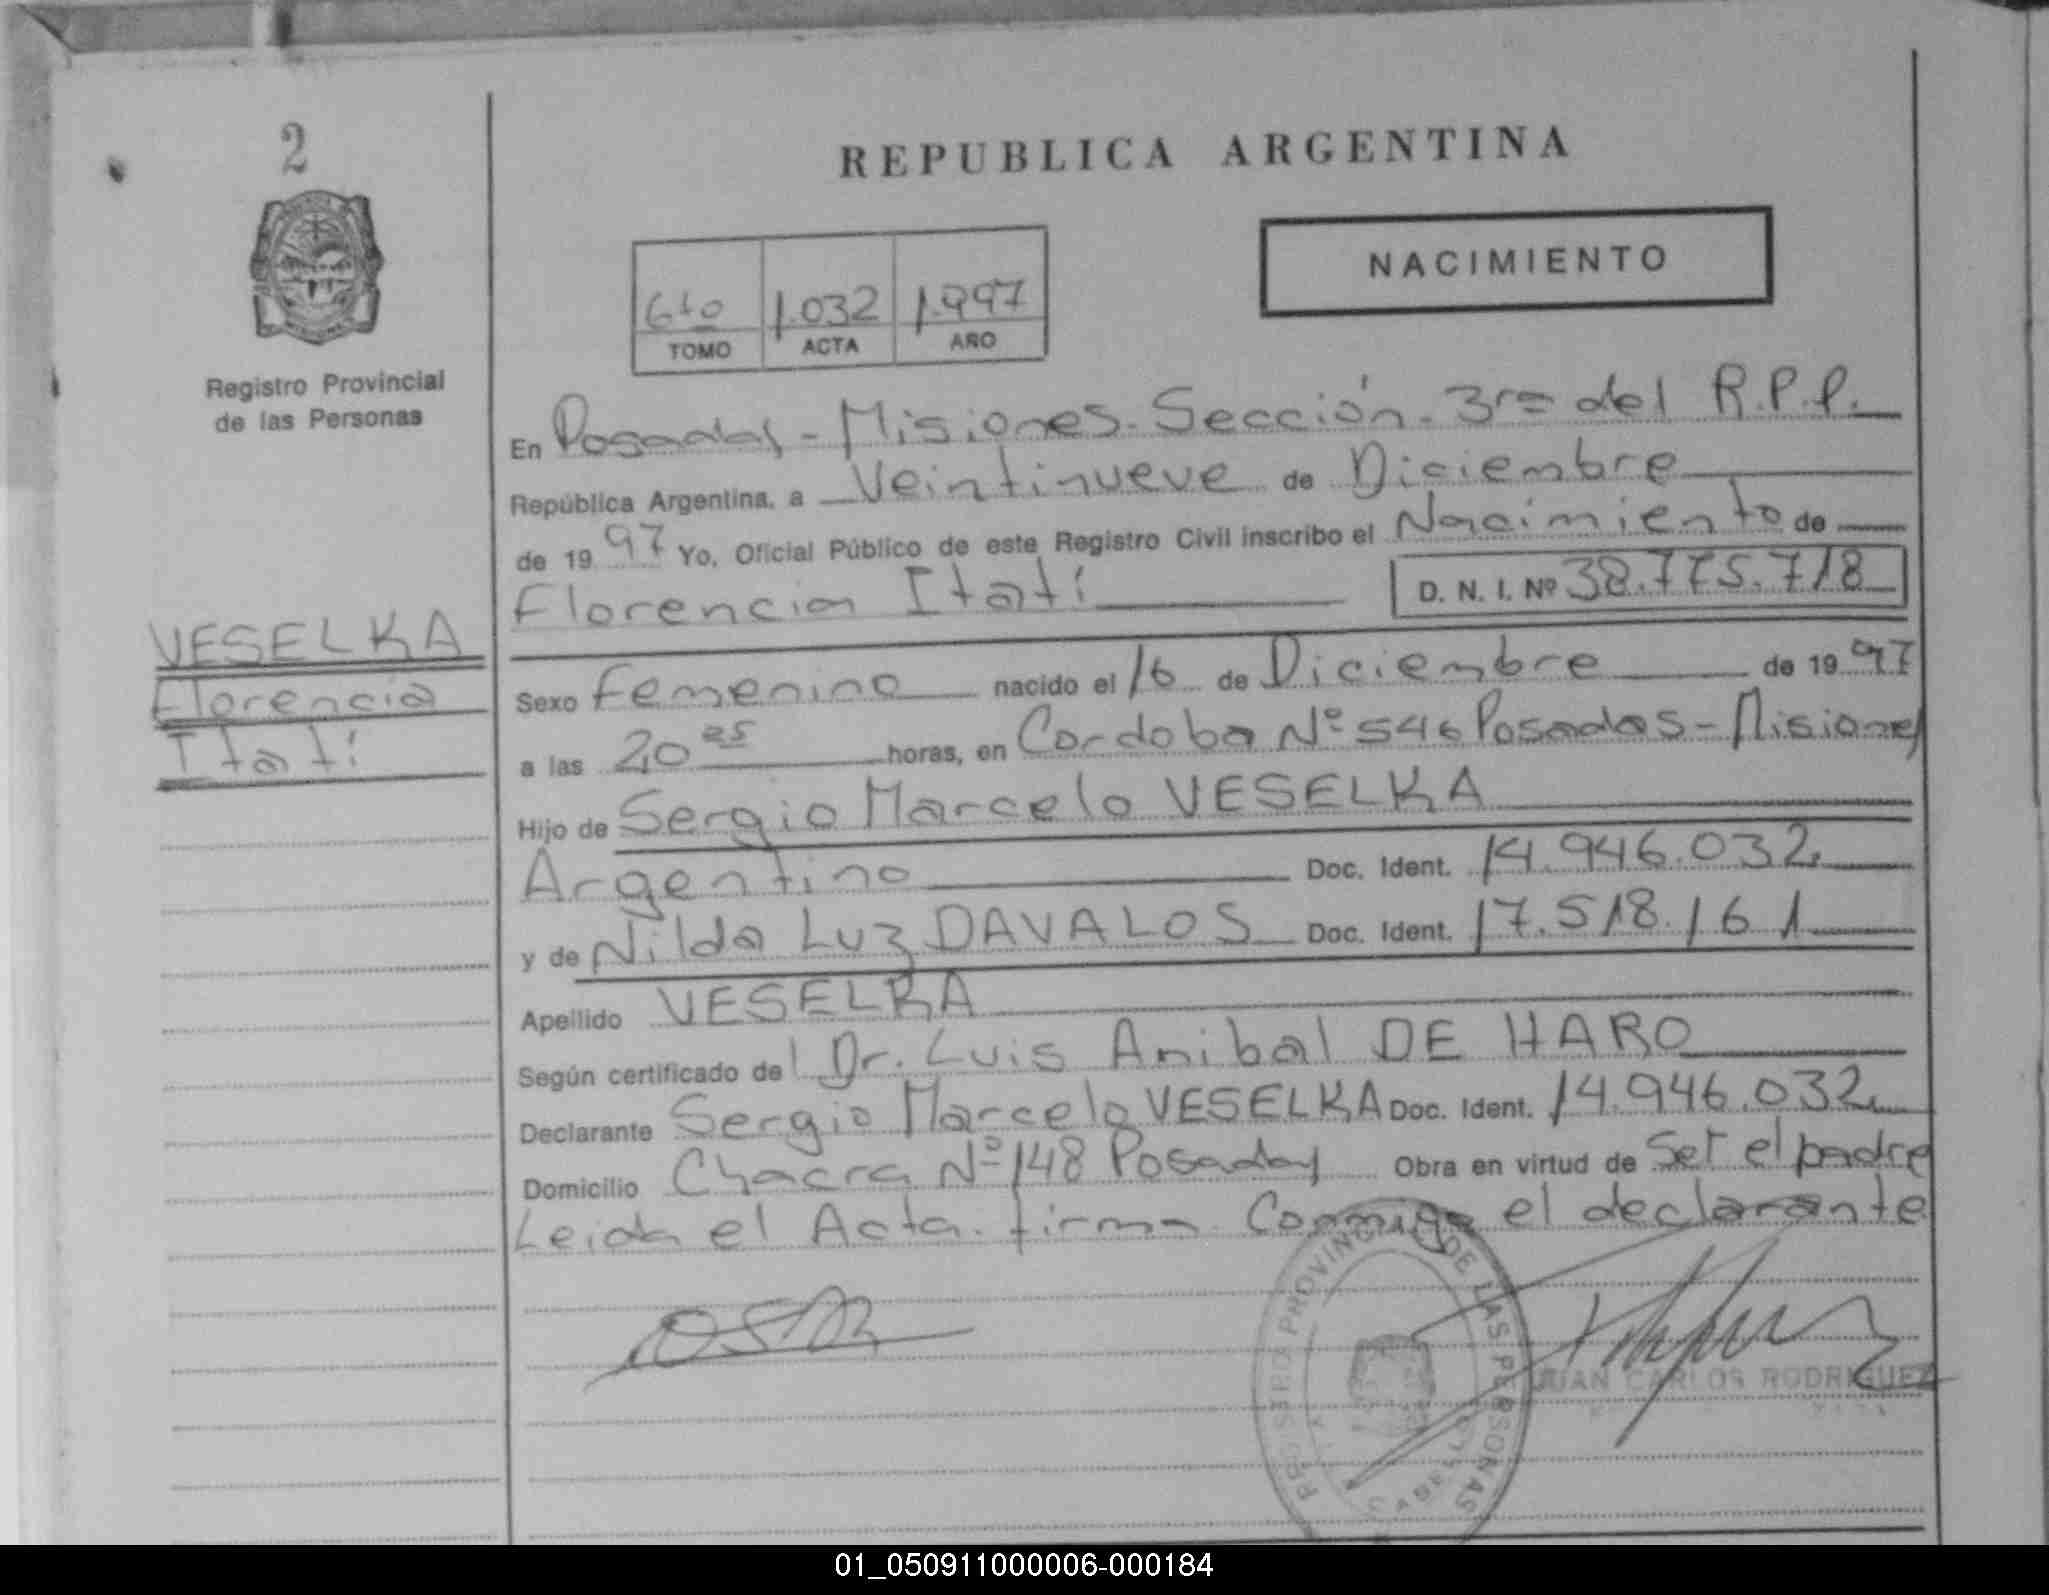 2
REPUBLICA ARGENTINA
NACIMIENTO
6to 1.032 1.997
TOMO ACTA AÑO
Registro Provincial
de las Personas
En Posadas - Misiones. Sección. 3ra del R.P.P.
República Argentina, a Veintinueve de Diciembre
de 1997 Yo, Oficial Público de este Registro Civil inscribo el Nacimiento de
Florencia Itatí D. N. I. Nº 38.775.718
VESELKA
Florencia
Itatí
Sexo Femenino nacido el 16 de Diciembre de 1997
a las 20 25 horas, en Cordoba Nº 546 Posadas - Misiones
Hijo de Sergio Marcelo VESELKA
Argentino Doc. Ident. 14.946.032
y de Nilda Luz DAVALOS Doc. Ident. 17.518.161
Apellido VESELKA
Según certificado del Dr. Luis Anibal DE HARO
Declarante Sergio Marcelo VESELKA Doc. Ident. 14.946.032
Domicilio Chacra Nº 148 Posadas Obra en virtud de Ser el padre
Leida el Acta. firma Conmigo el declarante
DE LAS PERSONAS
JUAN CARLOS RODRIGUEZ
01_050911000006-000184